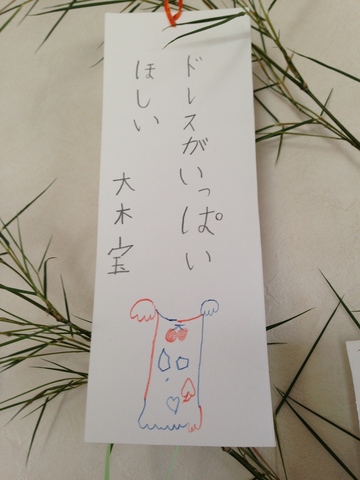 ドレスがいっぱい
ほしい
大木宝